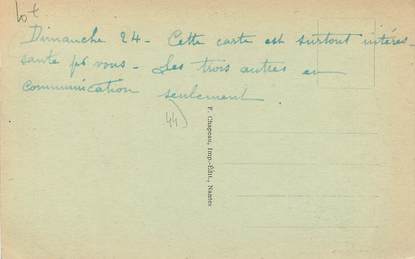 Lot
Dimanche 24 - Cette carte est surtout intéres-
sante pr vous - Les trois autres en
communication seulement
44)
F. Chapeau, Imp.-Édit., Nantes